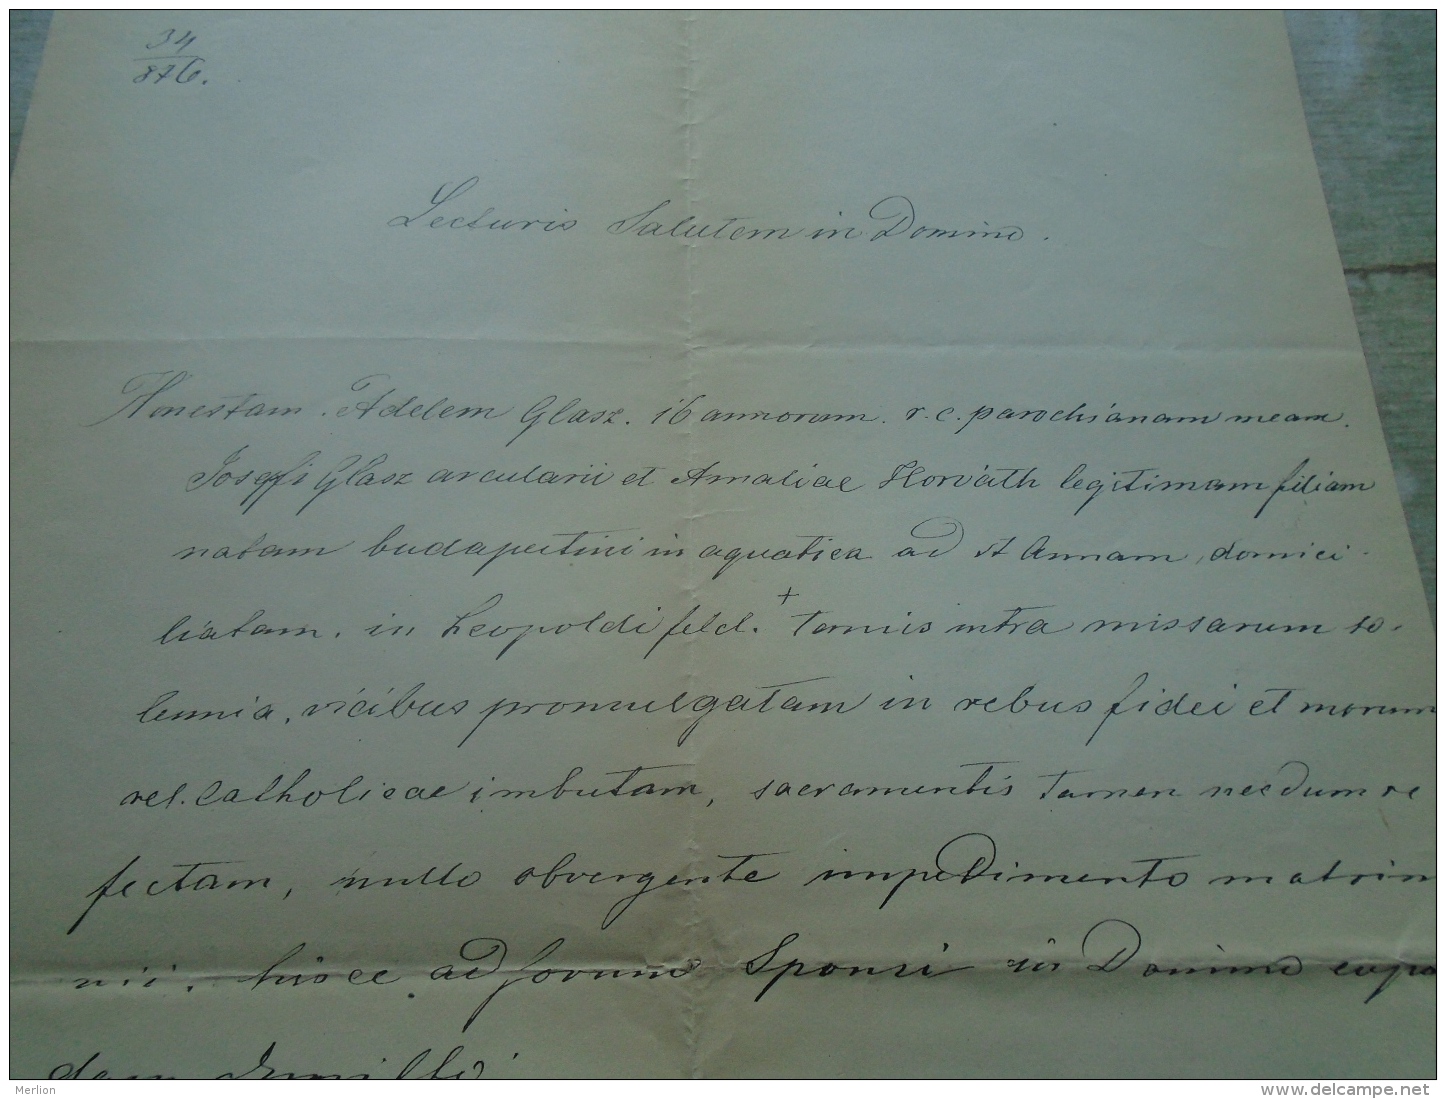 34
876.
Lecturis Salutem in Domino.
Honestam. Adelem Glasz. 16 annorum. r. c. parochianam meam.
Josefi Glasz arcularii et Amaliae Horváth legitimam filiam
natam budapestini in aquatica ad St Annam, domici-
liatam. in Leopoldifeld. + ternis intra missarum so-
lemnia, vicibus promulgatam in rebus fidei et morum
rel. catholicae imbutam, sacramentis tamen necdum re
fectam, nullo obvergente impedimento matrim
nii. hisce ad forum Sponsi in Domino copu
dam
Merlion
www.delcampe.net